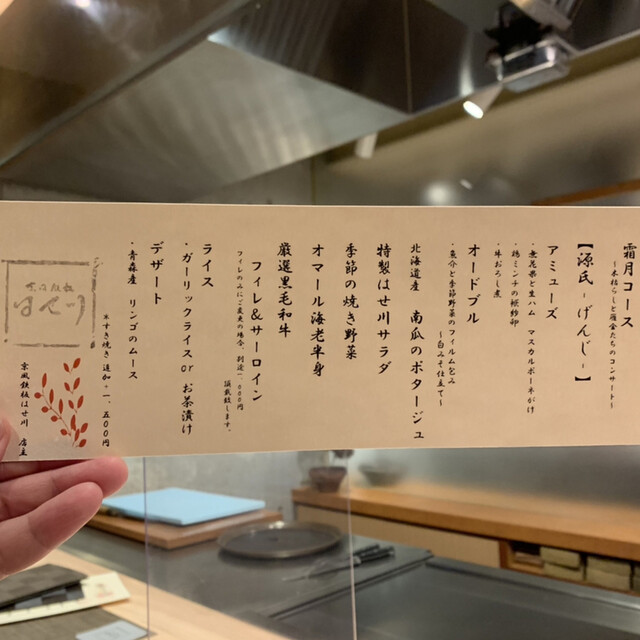 霜月コース
〜木枯らしと雁金たちのコンサート〜
【源氏-げんじ-】
アミューズ
・無花果と生ハム マスカルポーネがけ
・鶏ミンチの袱紗卵
・牛おろし煮
オードブル
・魚介と季節野菜のフィルム包み
〜白みそ仕立て〜
北海道産 南瓜のポタージュ
特製はせ川サラダ
季節の焼き野菜
オマール海老半身
厳選黒毛和牛
フィレ&サーロイン
フィレのみにご変更の場合、別途一、000円
頂戴致します。
ライス
・ガーリックライス or お茶漬け
デザート
・青森産 リンゴのムース
＊すき焼き追加+一、五00円
京風鉄板はせ川 店主